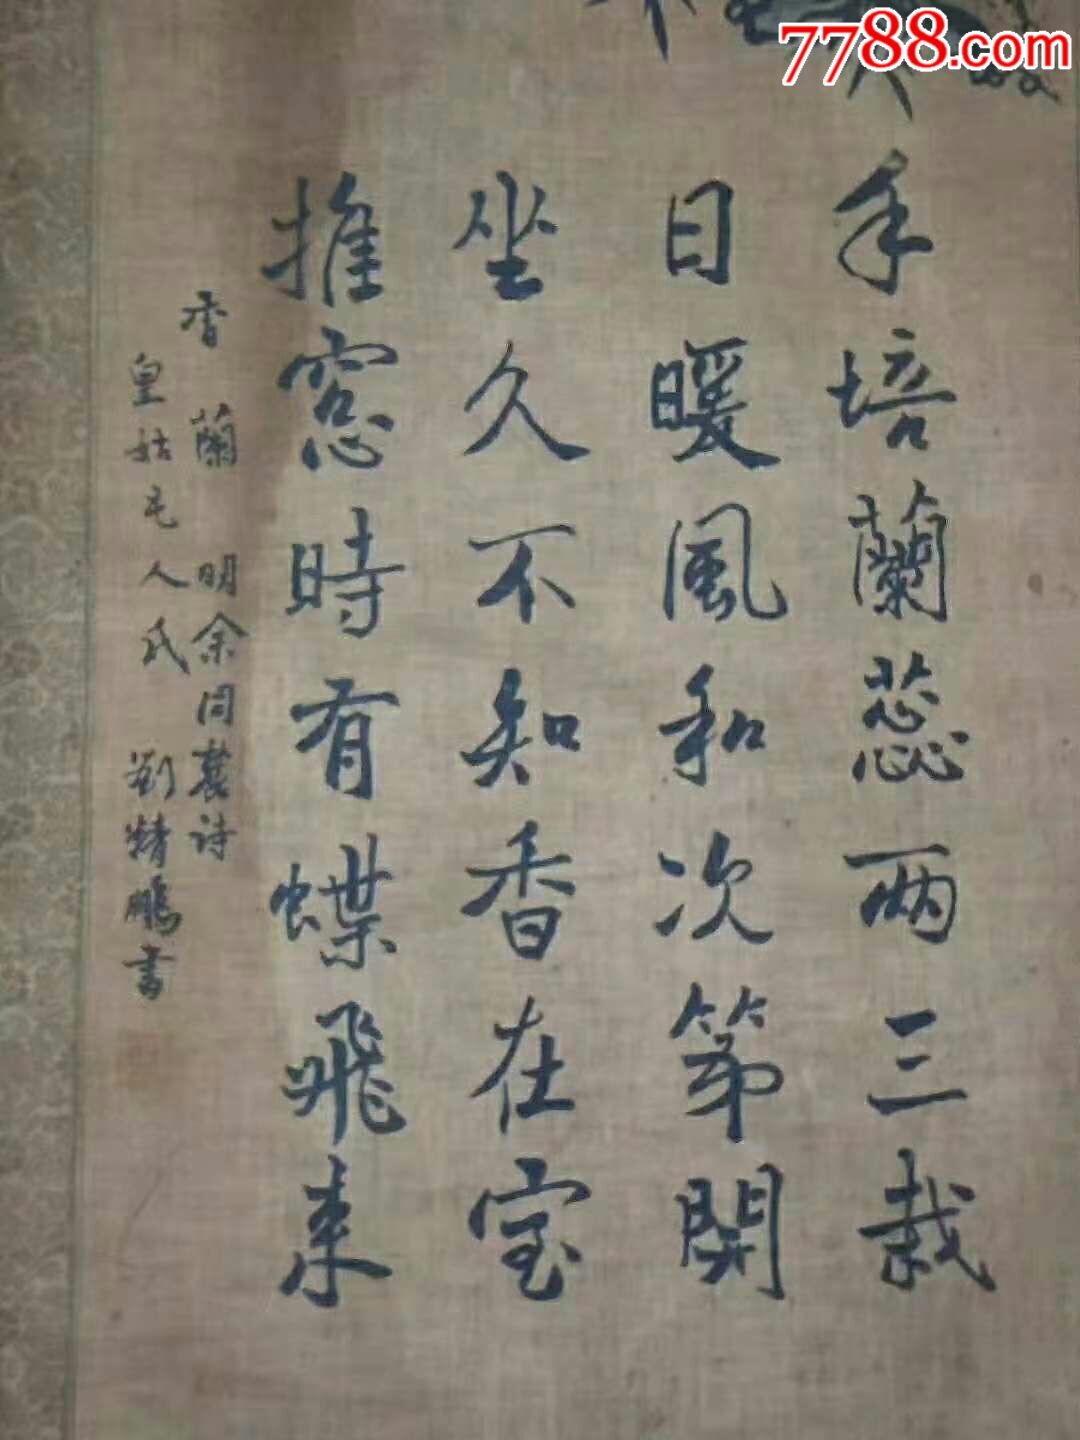 7788.com
手培蘭蕊两三栽
日暖風和次第開
坐久不知香在室
推窓時有蝶飛来
香蘭 明余同麓诗
皇姑屯人氏 劉精鵬書